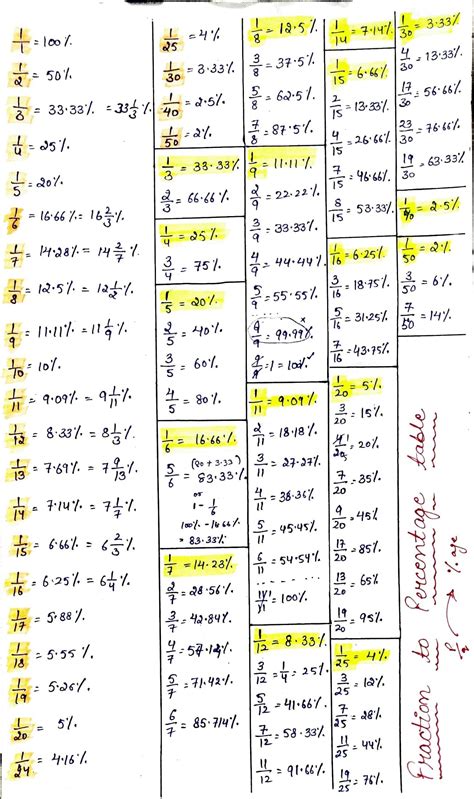 1/1 = 100%
1/2 = 50%
1/3 = 33.33% = 33 1/3 %
1/4 = 25%
1/5 = 20%
1/6 = 16.66% = 16 2/3 %
1/7 = 14.28% = 14 2/7 %
1/8 = 12.5% = 12 1/2 %
1/9 = 11.11% = 11 1/9 %
1/10 = 10%
1/11 = 9.09% = 9 1/11 %
1/12 = 8.33% = 8 1/3 %
1/13 = 7.69% = 7 9/13 %
1/14 = 7.14% = 7 1/7 %
1/15 = 6.66% = 6 2/3 %
1/16 = 6.25% = 6 1/4 %
1/17 = 5.88%
1/18 = 5.55%
1/19 = 5.26%
1/20 = 5%
1/24 = 4.16%
1/25 = 4%
1/30 = 3.33%
1/40 = 2.5%
1/50 = 2%
1/3 = 33.33%
2/3 = 66.66%
1/4 = 25%
3/4 = 75%
1/5 = 20%
2/5 = 40%
3/5 = 60%
4/5 = 80%
1/6 = 16.66%
(80 + 3.33)
5/6 = 83.33%
or
1 - 1/6
100% - 16.66%
= 83.33%
1/7 = 14.28%
2/7 = 28.56%
3/7 = 42.84%
4/7 = 57.12%
5/7 = 71.42%
6/7 = 85.714%
1/8 = 12.5%
3/8 = 37.5%
5/8 = 62.5%
7/8 = 87.5%
1/9 = 11.11%
2/9 = 22.22%
3/9 = 33.33%
4/9 = 44.44%
5/9 = 55.55%
9/9 = 99.99% ×
9/9 = 1 = 100% ✓
1/11 = 9.09%
2/11 = 18.18%
3/11 = 27.27%
4/11 = 36.36%
5/11 = 45.45%
6/11 = 54.54%
11/11 = 100%
1/12 = 8.33%
3/12 = 1/4 = 25%
5/12 = 41.66%
7/12 = 58.33%
11/12 = 91.66%
1/14 = 7.14%
1/15 = 6.66%
2/15 = 13.33%
4/15 = 26.66%
7/15 = 46.66%
8/15 = 53.33%
1/16 = 6.25%
3/16 = 18.75%
5/16 = 31.25%
7/16 = 43.75%
1/20 = 5%
3/20 = 15%
4/20 = 20%
7/20 = 35%
9/20 = 45%
17/20 = 85%
13/20 = 65%
19/20 = 95%
1/25 = 4%
3/25 = 12%
7/25 = 28%
11/25 = 44%
19/25 = 76%
1/30 = 3.33%
4/30 = 13.33%
17/30 = 56.66%
23/30 = 76.66%
19/30 = 63.33%
1/40 = 2.5%
1/50 = 2%
3/50 = 6%
7/50 = 14%
Fraction to Percentage table
% age